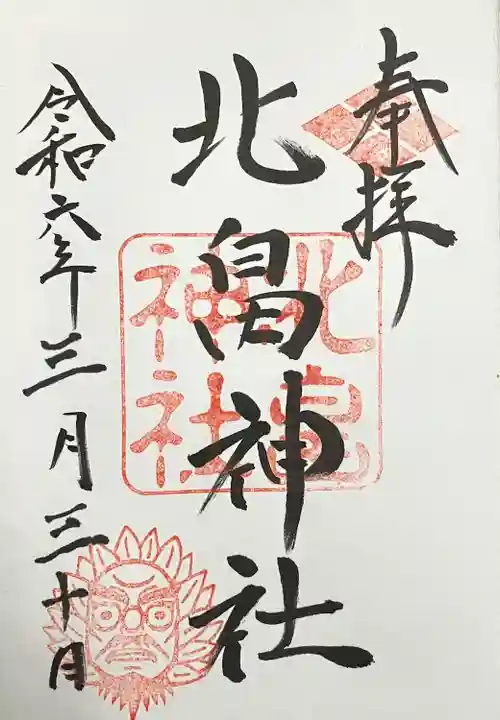 奉拝
北畠神社
北畠神社
令和六年三月三十日